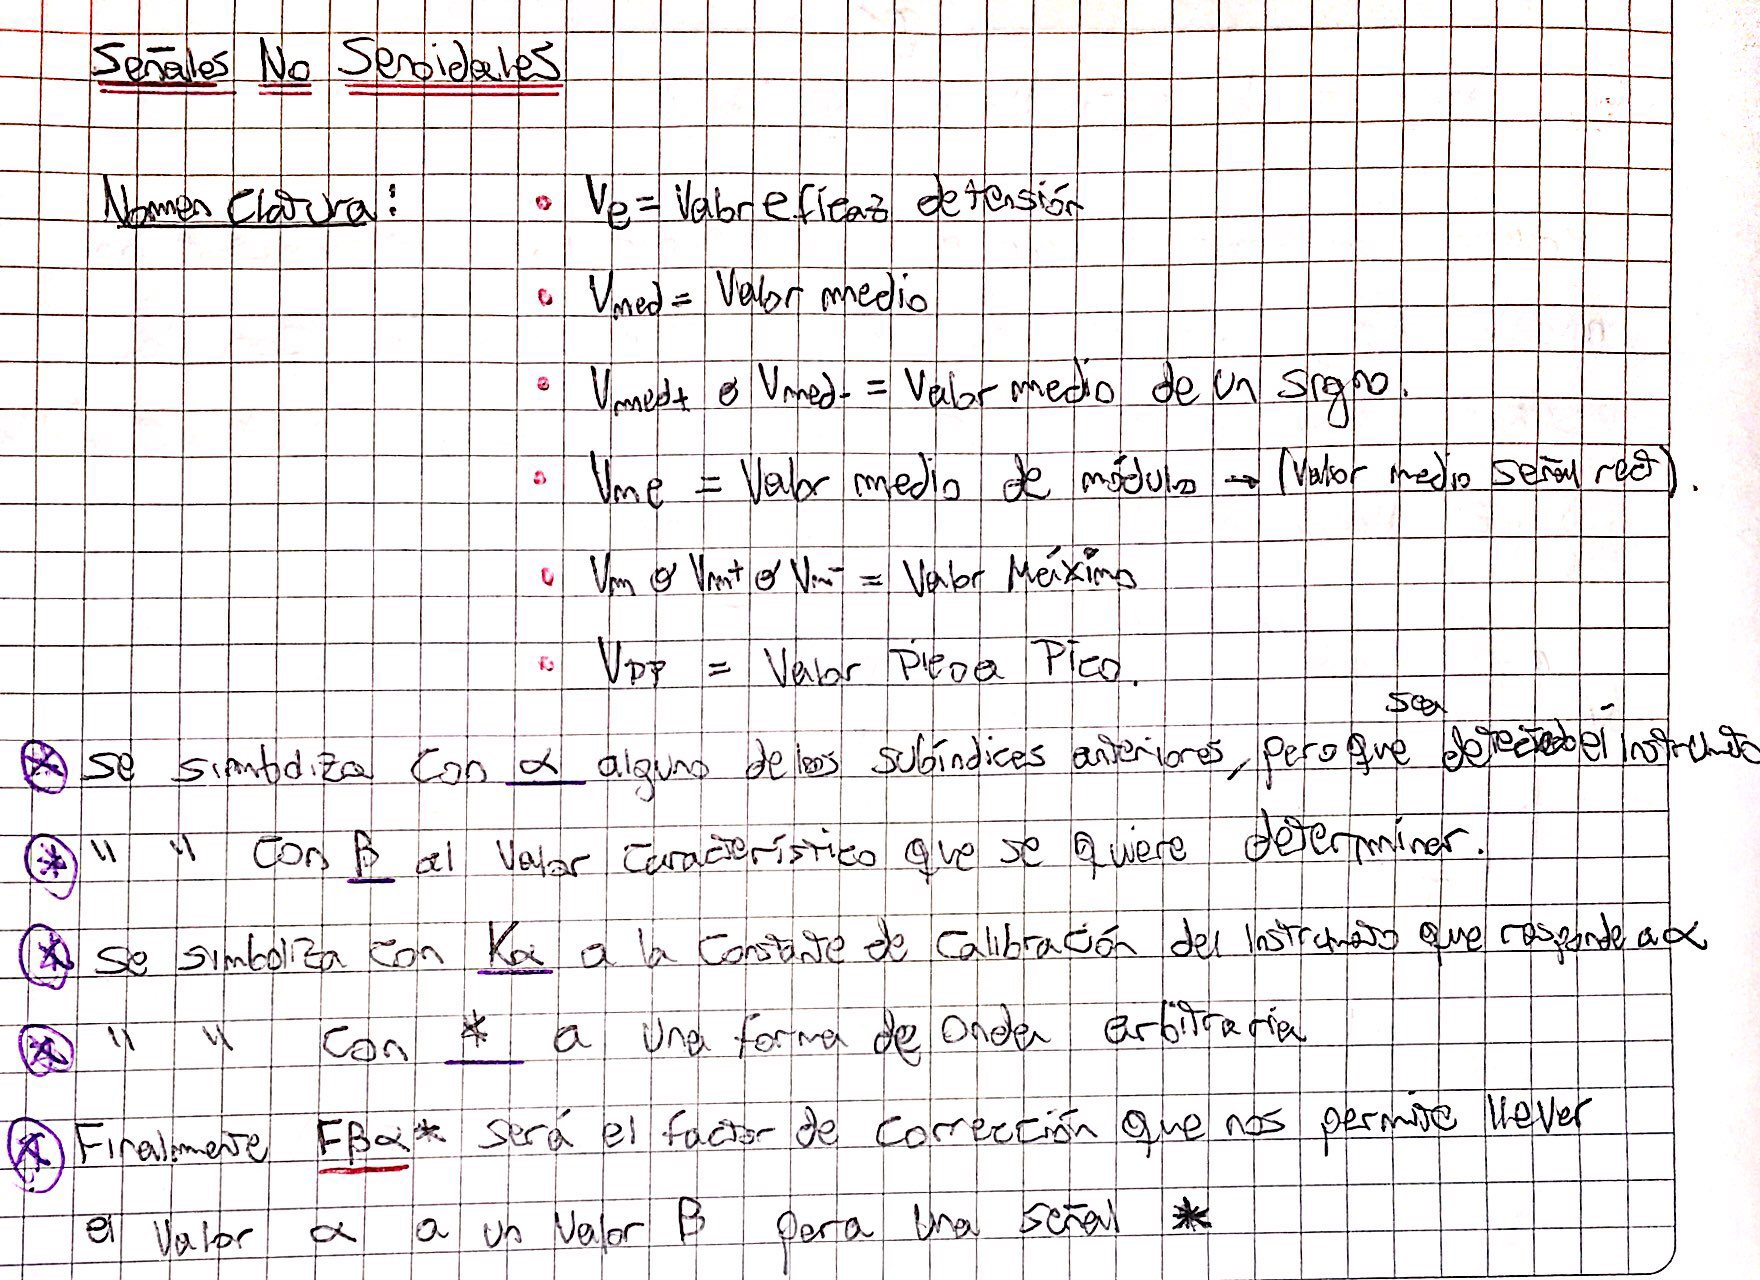 Señales No Senoidales
Nomenclatura: • Ve = Valor eficaz de tensión
• Vmed = Valor medio
• Vmed+ o Vmed- = Valor medio de un signo.
• Vme = Valor medio de módulo → (Valor medio señal rect).
• Vm o Vm+ o Vm- = Valor Máximo
• VPP = Valor Pico a Pico.
sea
* se simboliza con α alguno de los subíndices anteriores, pero que detectado el instrumento
* " " con β al valor característico que se quiere determinar.
* se simboliza con Kα a la constante de calibración del instrumento que responde a α
* " " con * a una forma de onda arbitraria
* Finalmente Fβα* será el factor de corrección que nos permite llever
el valor α a un valor β para una señal *